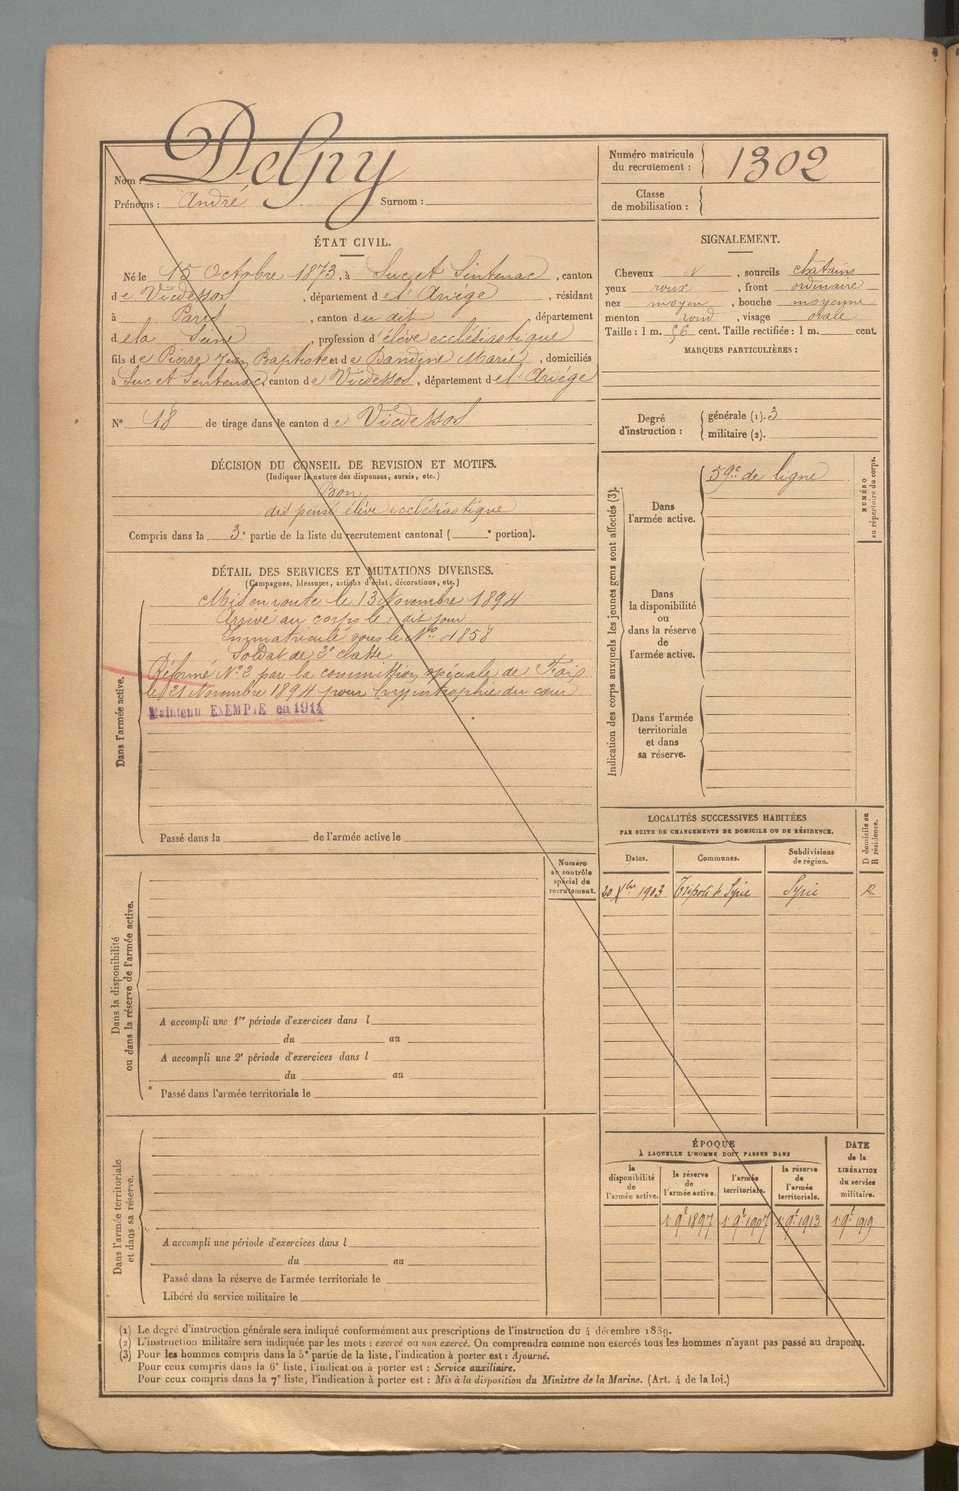 Nom : Delpy
Prénoms : André Surnom :
Numéro matricule du recrutement : 1302
Classe de mobilisation :
ÉTAT CIVIL.
Né le 15 Octobre 1873, à Suc et Sentenac, canton
de Vicdessos, département de l'Ariège, résidant
à Paris, canton du dit département
de la Seine, profession d'élève ecclésiastique
fils de Pierre Jean Baptiste et de Dandine Marie, domiciliés
à Suc et Sentenac, canton de Vicdessos, département de l'Ariège
N° 18 de tirage dans le canton de Vicdessos
SIGNALEMENT.
Cheveux N, sourcils chatains
yeux roux, front ordinaire
nez moyen, bouche moyenne
menton rond, visage ovale
Taille : 1 m. 56 cent. Taille rectifiée : 1 m. cent.
MARQUES PARTICULIÈRES :
Degré d'instruction : générale (1). 3
militaire (2).
DÉCISION DU CONSEIL DE REVISION ET MOTIFS.
(Indiquer la nature des dispenses, sursis, etc.)
Bon
dispensé élève ecclésiastique
Compris dans la 3e partie de la liste du recrutement cantonal ( e portion).
DÉTAIL DES SERVICES ET MUTATIONS DIVERSES.
(Campagnes, blessures, actions d'éclat, décorations, etc.)
Dans l'armée active.
Mis en route le 13 Novembre 1894
Arrivé au corps le dit jour
Immatriculé sous le N° 1858
Soldat de 2e classe
Réformé N° 2 par la commission spéciale de Foix
le 21 Novembre 1894 pour hypertrophie du cœur
Maintenu EXEMPTE en 1914
Passé dans la de l'armée active le
Indication des corps auxquels les jeunes gens sont affectés (3).
NUMÉRO au répertoire du corps.
Dans l'armée active.
59e de ligne
Dans la disponibilité ou dans la réserve de l'armée active.
Dans l'armée territoriale et dans sa réserve.
LOCALITÉS SUCCESSIVES HABITÉES
PAR SUITE DE CHANGEMENTS DE DOMICILE OU DE RÉSIDENCE.
Dates. Communes. Subdivisions de région. D domicile ou R résidence.
20 Xbre 1903 Tripoli de Syrie Syrie R
Numéro au contrôle spécial du recrutement.
Dans la disponibilité ou dans la réserve de l'armée active.
A accompli une 1re période d'exercices dans l
du au
A accompli une 2e période d'exercices dans l
du au
Passé dans l'armée territoriale le
Dans l'armée territoriale et dans sa réserve.
A accompli une période d'exercices dans l
du au
Passé dans la réserve de l'armée territoriale le
Libéré du service militaire le
ÉPOQUE
À LAQUELLE L'HOMME DOIT PASSER DANS
la disponibilité de l'armée active.
la réserve de l'armée active.
l'armée territoriale.
la réserve de l'armée territoriale.
DATE de la LIBÉRATION du service militaire.
1 9e 1897 1 9e 1907 1 9e 1913 1 9e 1919
(1) Le degré d'instruction générale sera indiqué conformément aux prescriptions de l'instruction du 4 décembre 1889.
(2) L'instruction militaire sera indiquée par les mots : exercé ou non exercé. On comprendra comme non exercés tous les hommes n'ayant pas passé au drapeau.
(3) Pour les hommes compris dans la 5e partie de la liste, l'indication à porter est : Ajourné.
Pour ceux compris dans la 6e liste, l'indication à porter est : Service auxiliaire.
Pour ceux compris dans la 7e liste, l'indication à porter est : Mis à la disposition du Ministre de la Marine. (Art. 4 de la loi.)